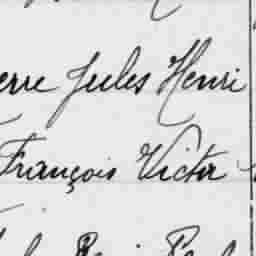 erre Jules Henri
François Victor